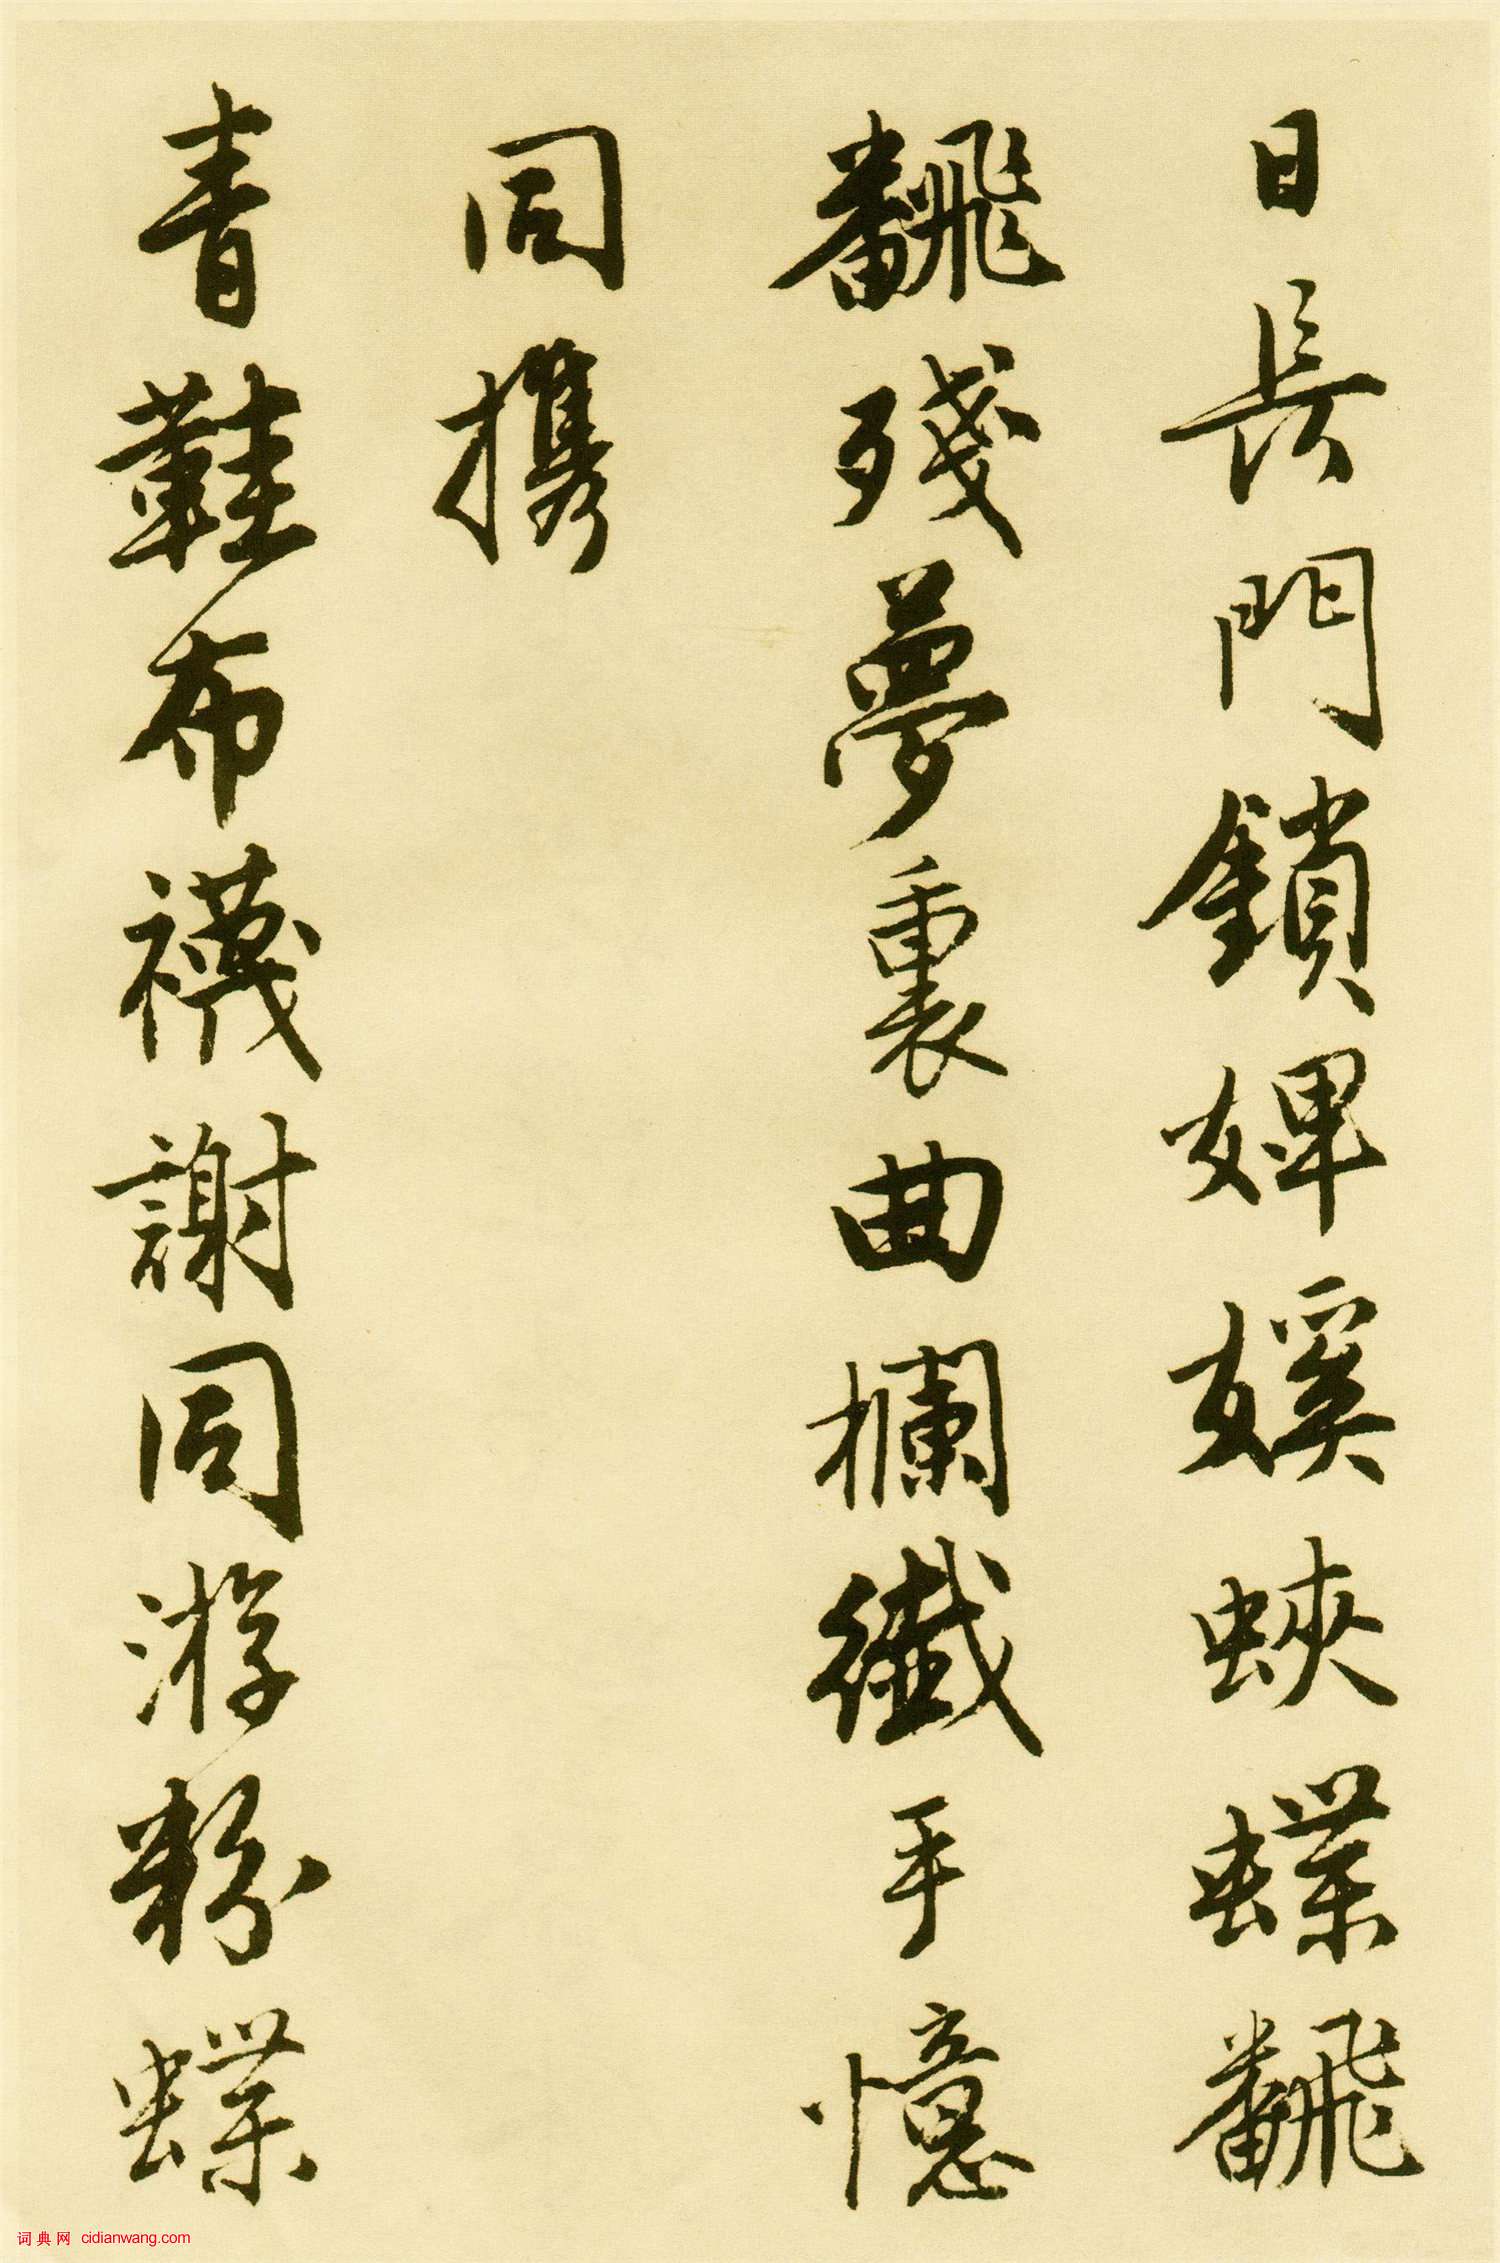 日長門鎖婢㜎蛺蝶飜
飜殘夢裏曲欄纖手憶
同携
青鞋布襪謝同游粉蝶
词典网 cidianwang.com